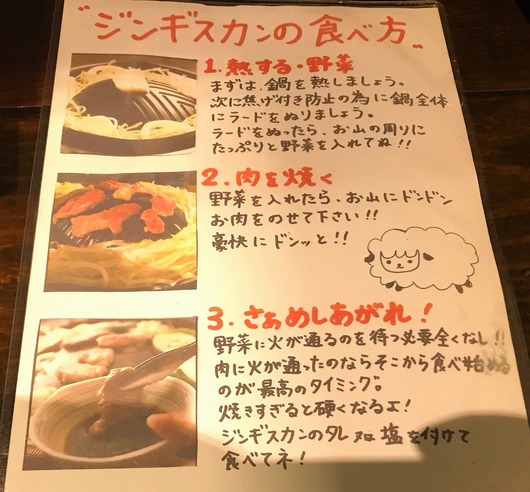 "ジンギスカンの食べ方"
1.熱する・野菜
まずは、鍋を熱しましょう。
次に焦げ付き防止の為に鍋全体
にラードをぬりましょう。
ラードをぬったら、お山の周りに
たっぷりと野菜を入れてね!!
2.肉を焼く
野菜を入れたら、お山にドンドン
お肉をのせて下さい!!
豪快にドンッと!!
3.さぁめしあがれ!
野菜に火が通るのを待つ必要全くなし!!
肉に火が通ったのならそこから食べ始める
のが最高のタイミング。
焼きすぎると硬くなるよ!
ジンギスカンのタレ又は塩を付けて
食べてネ!